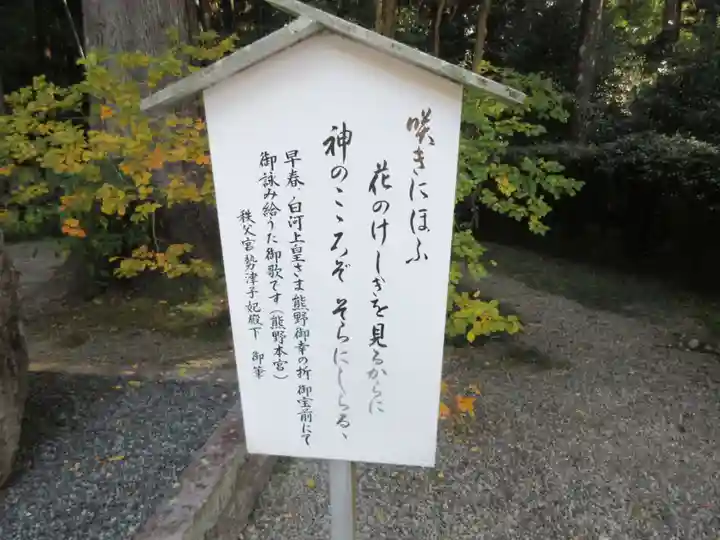 咲きにほふ
花のけしきを見るからに
神のこゝろぞそらにしらるゝ
早春、白河上皇さま熊野御幸の折 御宝前にて
御詠み給うた御歌です（熊野本宮）
秩父宮勢津子妃殿下 御筆